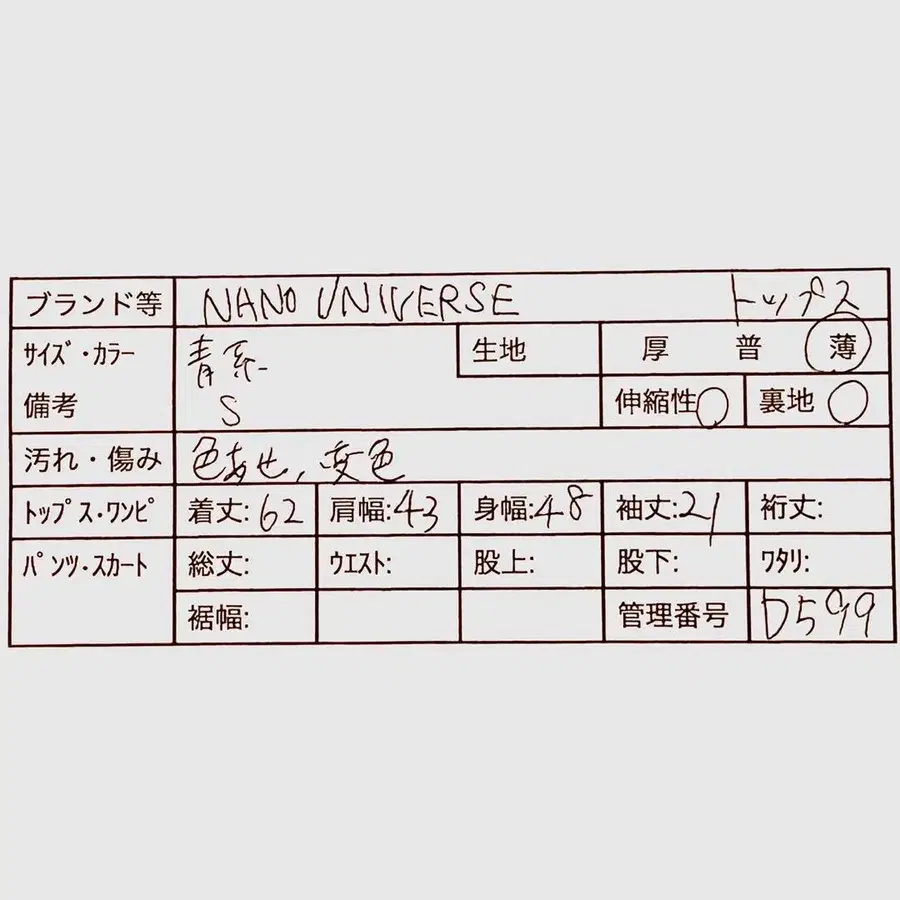 ブランド等 NANO UNIVERSE トップス
サイズ・カラー 青系 生地 厚 普 薄
備考 S 伸縮性○ 裏地 ○
汚れ・傷み 色あせ, 変色
トップス・ワンピ 着丈:62 肩幅:43 身幅:48 袖丈:21 裄丈:
パンツ・スカート 総丈: ウエスト: 股上: 股下: ワタリ:
裾幅: 管理番号 D599